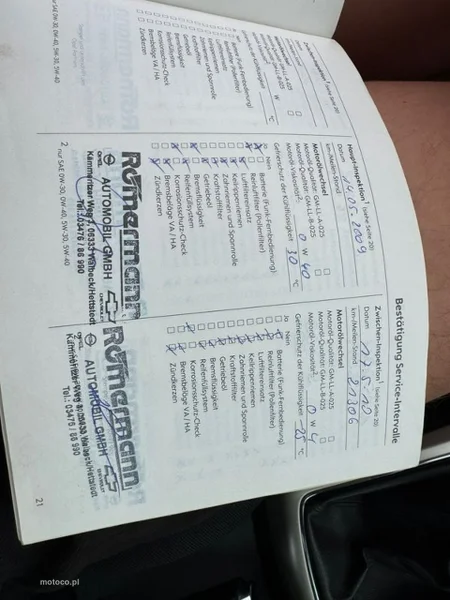 Bestätigung Service-Intervalle
Zwischen-Inspektion¹ (siehe Seite 20)
Datum
km-/Meilen-Stand 21306
Motorölwechsel
Motoröl-Qualität GM-LL-A-025
Motoröl-Qualität GM-LL-B-025
Motoröl-Viskosität²: 0 W
Gefrierschutz der Kühlflüssigkeit 25 °C
Ja Nein
Batterie (Funk-Fernbedienung)
Reinluftfilter (Pollenfilter)
Luftfiltereinsatz
Keilrippenriemen
Zahnriemen und Spannrolle
Kraftstofffilter
Getriebeöl
Bremsflüssigkeit
Reifenfüllsystem
Korrosionsschutz-Check
Bremsbeläge VA / HA
Zündkerzen
Römermann
AUTOMOBIL GMBH
CHEVROLET
Kammeritzer Weg
Walbeck/Hettstedt
Tel.: 03476 / 86 990
21
Haupt-Inspektion¹ (siehe Seite 20)
Datum 14.05.2009
km-/Meilen-Stand
Motorölwechsel
Motoröl-Qualität GM-LL-A-025
Motoröl-Qualität GM-LL-B-025
Motoröl-Viskosität²: 0 W 40
Gefrierschutz der Kühlflüssigkeit 30 °C
Ja Nein
Batterie (Funk-Fernbedienung)
Reinluftfilter (Pollenfilter)
Luftfiltereinsatz
Keilrippenriemen
Zahnriemen und Spannrolle
Kraftstofffilter
Getriebeöl
Bremsflüssigkeit
Reifenfüllsystem
Korrosionsschutz-Check
Bremsbeläge VA / HA
Zündkerzen
Römermann
AUTOMOBIL GMBH
CHEVROLET
Kammeritzer Weg 06333 Walbeck/Hettstedt
Tel.: 03476 / 86 990
2 nur SAE 0W-30, 0W-40, 5W-30, 5W-40
(siehe Seite 20)
GM-LL-A-025
GM-LL-B-025
W
°C
Batterie (Funk-Fernbedienung)
Reinluftfilter (Pollenfilter)
Luftfiltereinsatz
Keilrippenriemen
Zahnriemen und Spannrolle
Kraftstofffilter
Getriebeöl
Bremsflüssigkeit
Reifenfüllsystem
Korrosionsschutz-Check
Bremsbeläge VA / HA
Zündkerzen
SAE 0W-30, 0W-40, 5W-30, 5W-40
motoco.pl